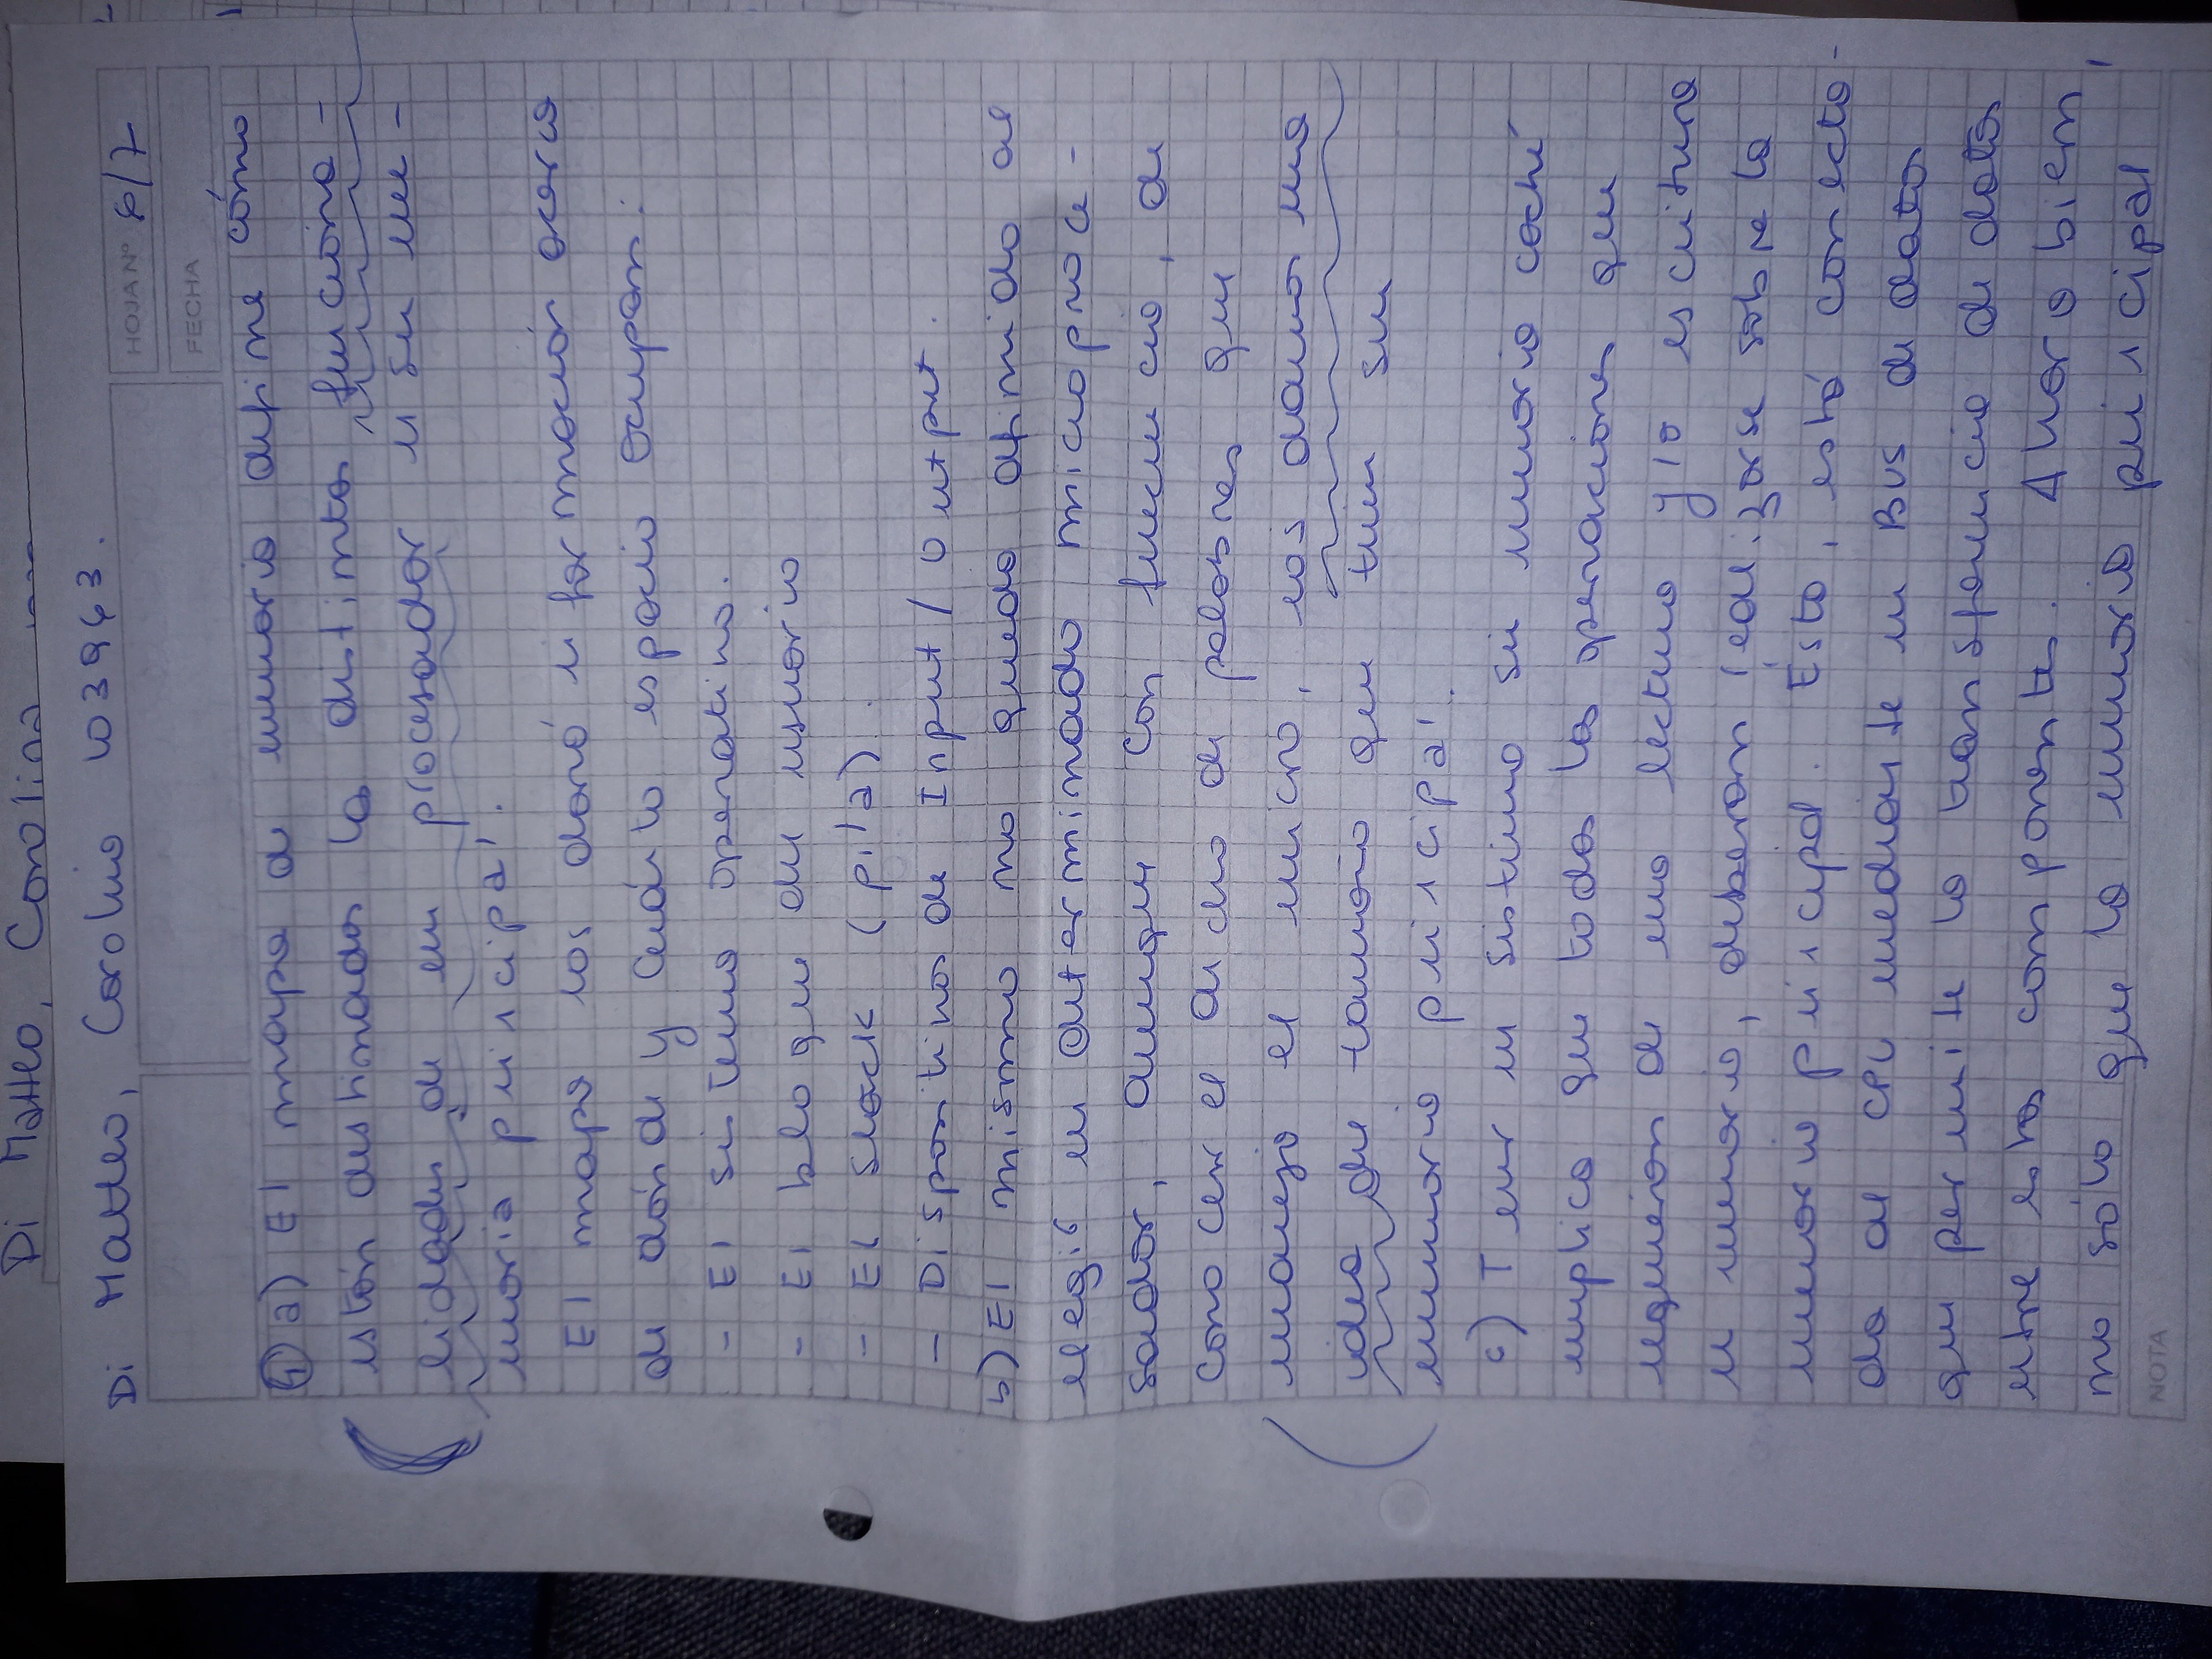 Di Matteo, Carolina
Di Matteo, Carolina 103963.
HOJA Nº 6/7
FECHA
④ a) El mapa de memoria define cómo
están destinadas las distintas funciona-
lidades de un procesador en su me-
moria principal.
El mapa nos dará información acerca
de dónde y cuánto espacio ocupan:
- El sistema operativo.
- El bloque del usuario
- El stack (pila).
- Dispositivos de Input/Output.
b) El mismo no queda definido al
elegir un determinado microproce-
sador, aunque con frecuencia, de
conocer el ancho de palabras que
maneja el micro, nos damos una
idea del tamaño que tiene su
memoria principal.
c) Tener un sistema sin memoria caché
implica que todas las operaciones que
requieran de una lectura y/o escritura
en memoria, deberán realizarse sobre la
memoria principal. Ésta, está conecta-
da al CPU mediante un BUS de datos
que permite la transferencia de datos
entre estos componentes. Ahora bien,
no sólo que la memoria principal
NOTA